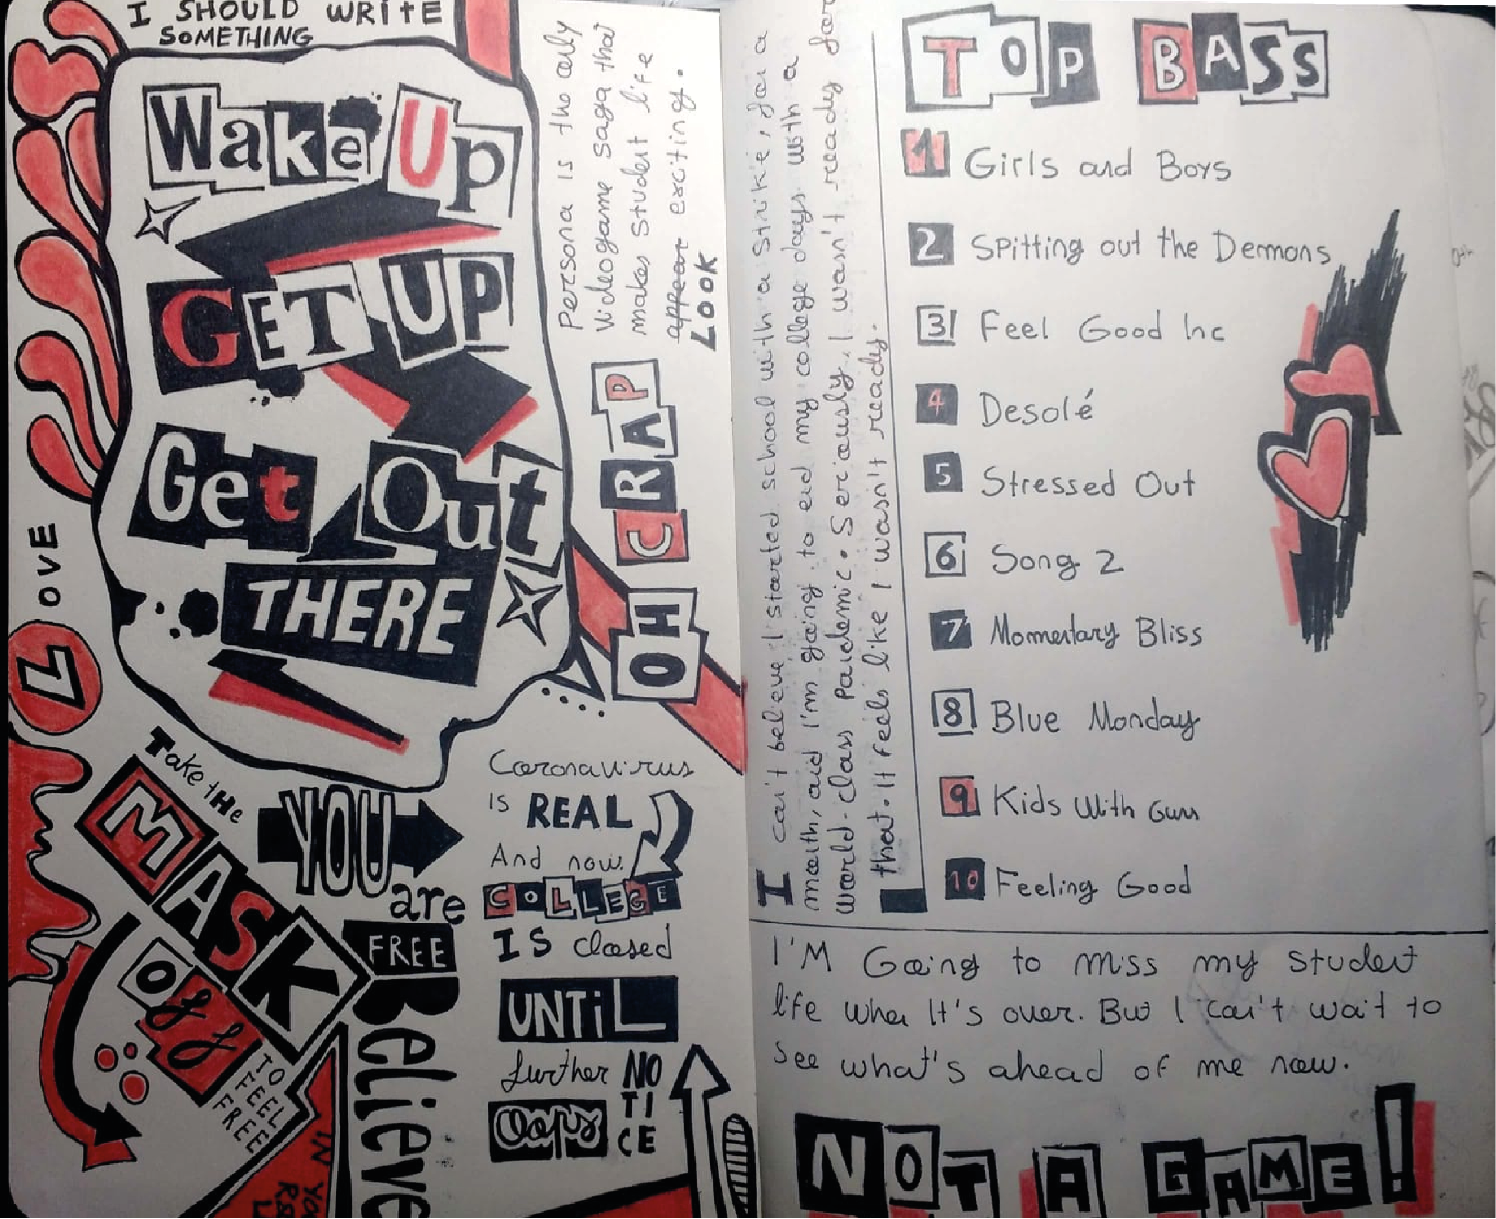 I SHOULD WRITE
SOMETHING
Wake Up
GET UP
Get Out
THERE
LOVE
Persona is the only
videogame saga that
makes student life
appear exciting.
LOOK
OH CRAP
Take tHe
MASK
Off
TO
FEEL
FREE
YOU
are
FREE
Believe
IN YOU
Coronavirus
is REAL
And now
COLLEGE
IS closed
UNTiL
further NO
TI
CE
Oops
I can't believe I started school with a strike, for a
month, and I'm going to end my college days with a
world-class Pandemic. Seriously, I wasn't ready for
that. It feels like I wasn't ready.
TOP BASS
1 Girls and Boys
2 Spitting out the Demons
3 Feel Good Inc
4 Desolé
5 Stressed Out
6 Song 2
7 Momentary Bliss
8 Blue Monday
9 Kids With Guns
10 Feeling Good
I'M Going to miss my student
life when It's over. But I can't wait to
see what's ahead of me now.
NOT A GAME!